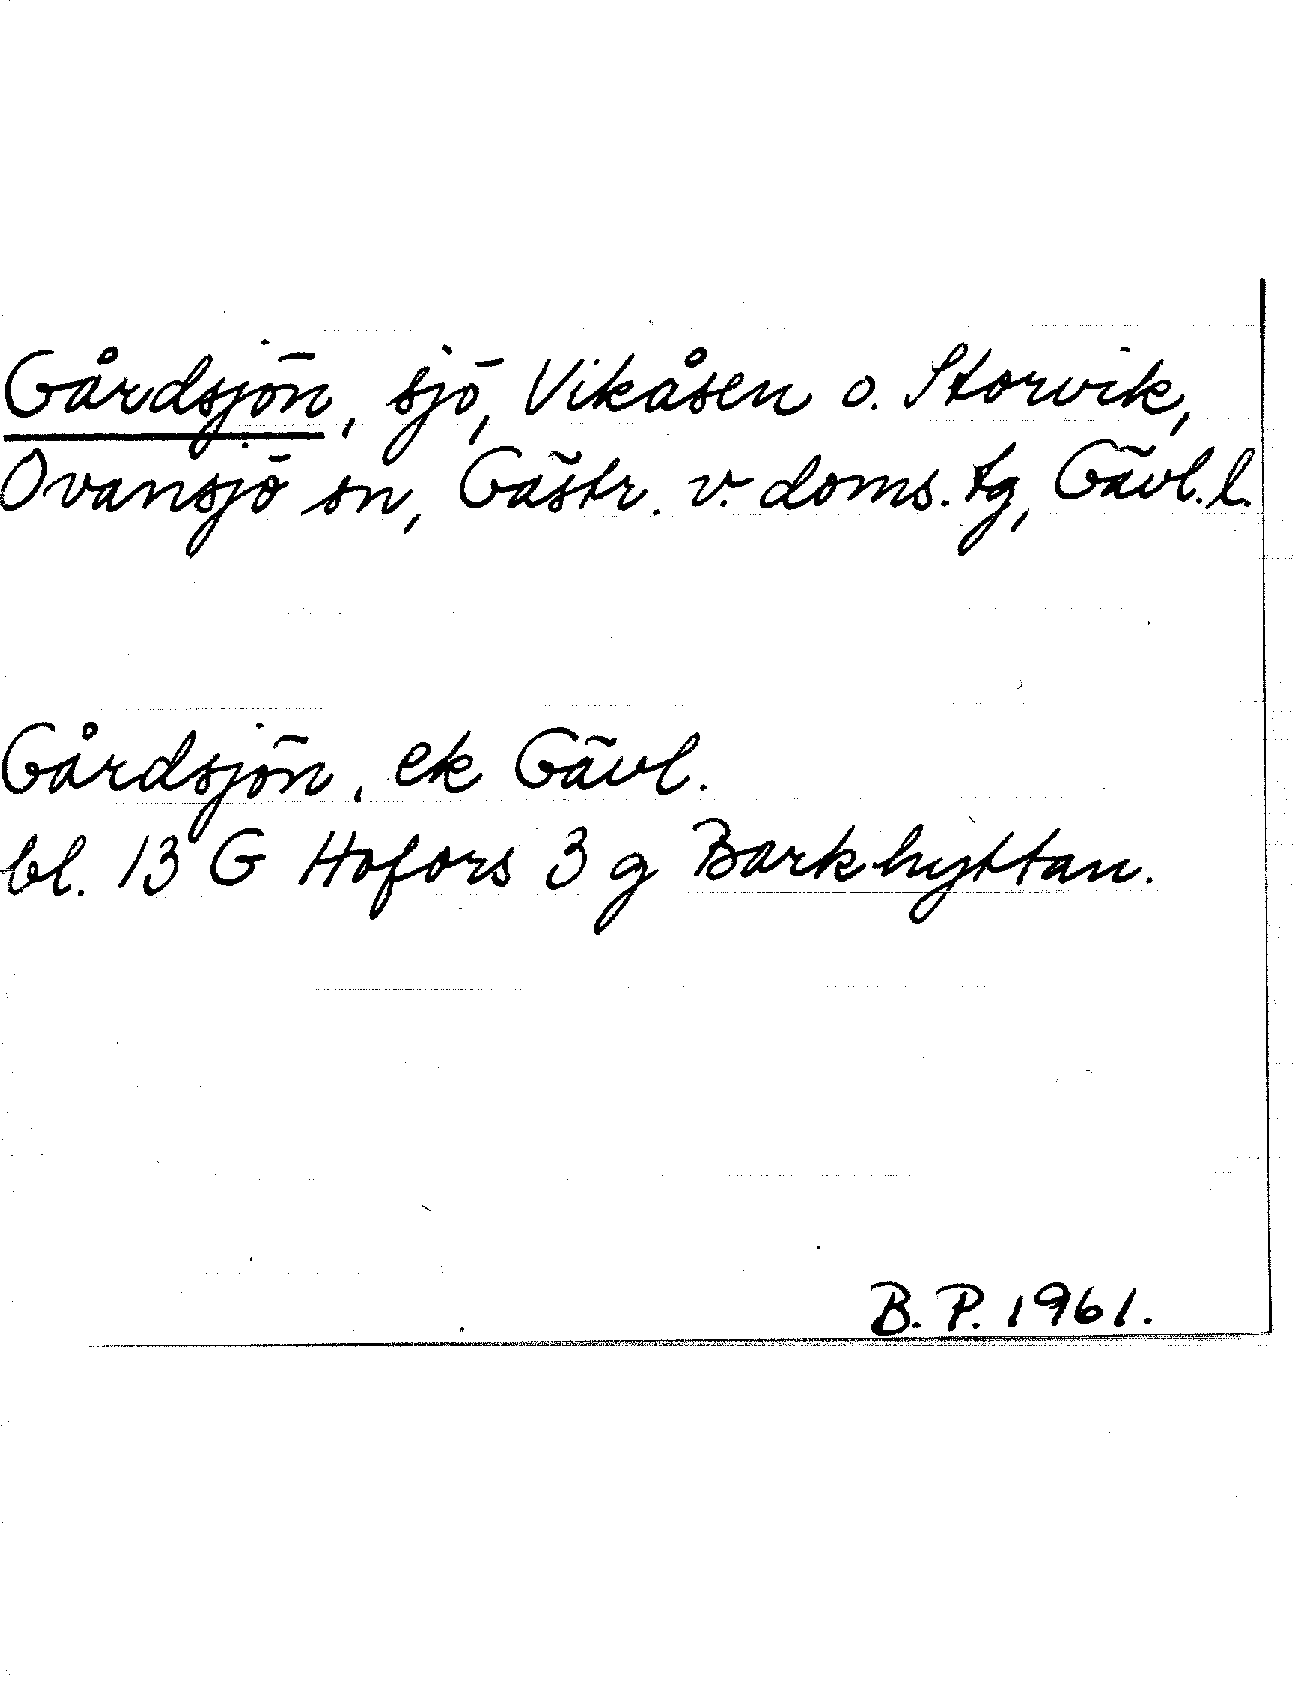 Gårdsjön, sjö, Vikåsen o. Storvik,
Ovansjö sn, Gästr. v. doms. tg, Gävl. l.
Gårdsjön, ek Gävl.
bl. 13 G Hofors 3 g Barkhyttan.
B. P. 1961.